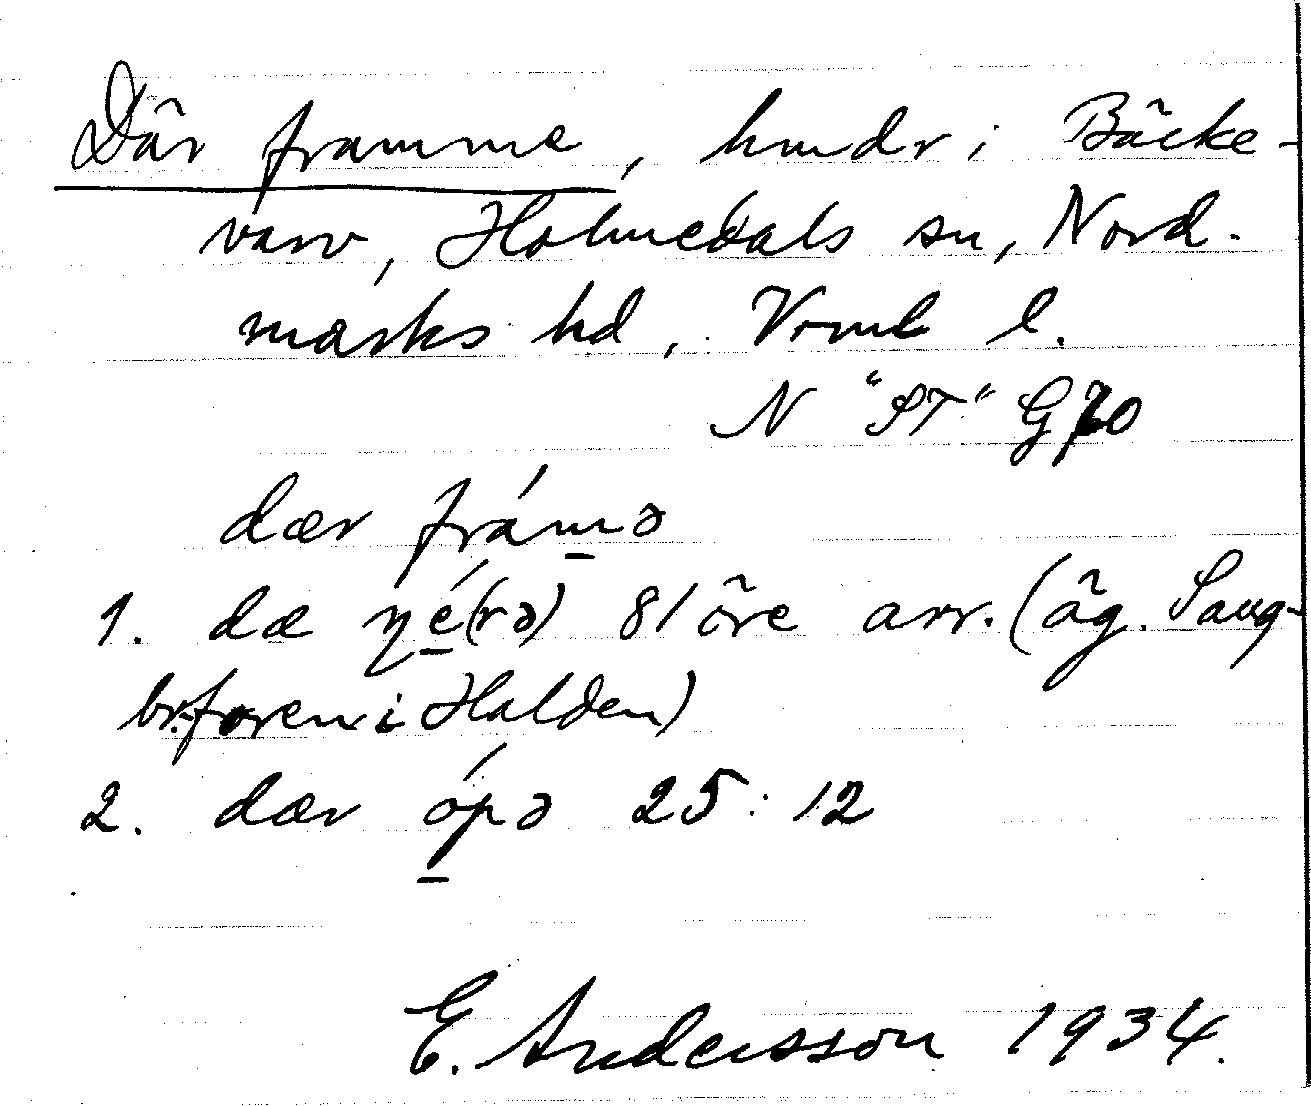 Där framme, hmdr i Bäcke-
varv, Holmedals sn, Nord-
marks hd, Vrml l.
N "ST" G70
dær frámə
1. dæ né(rə) 81 öre arr. (äg. Saug-
br.foren i Halden)
2. dær ópə 25:12
E. Andersson 1934.